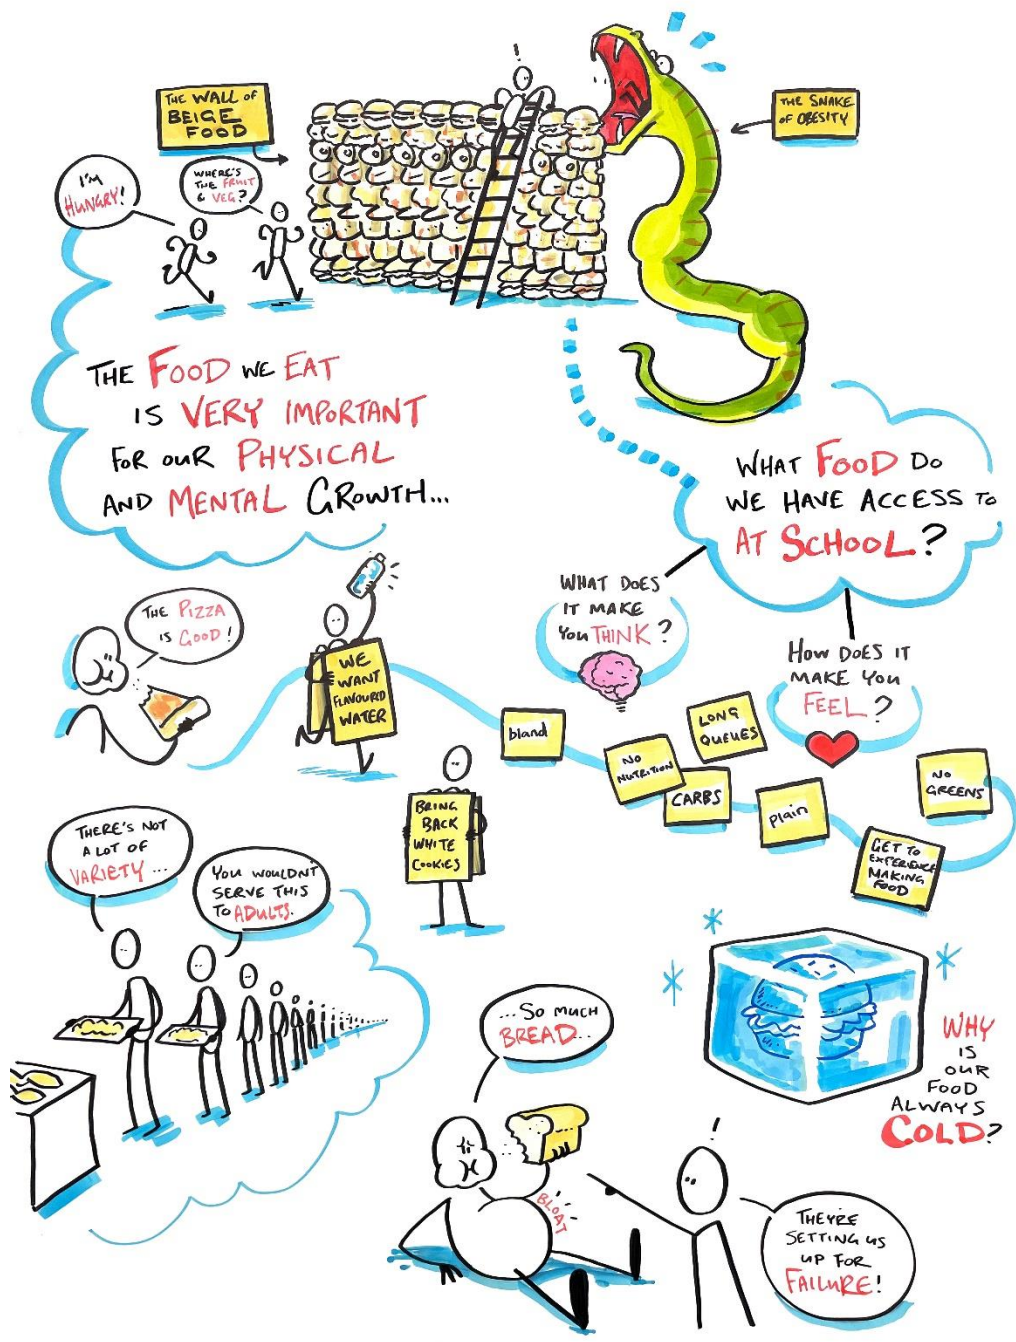 THE WALL OF
BEIGE
FOOD
THE SNAKE
OF OBESITY
I'M
HUNGRY!
WHERE'S
THE FRUIT
& VEG?
!
THE FOOD WE EAT
IS VERY IMPORTANT
FOR OUR PHYSICAL
AND MENTAL GROWTH...
WHAT FOOD DO
WE HAVE ACCESS TO
AT SCHOOL?
WHAT DOES
IT MAKE
YOU THINK?
HOW DOES IT
MAKE YOU
FEEL?
THE PIZZA
IS GOOD!
WE
WANT
FLAVOURED
WATER
BRING
BACK
WHITE
COOKIES
bland
NO
NUTRITION
LONG
QUEUES
CARBS
plain
NO
GREENS
GET TO
EXPERIENCE
MAKING
FOOD
THERE'S NOT
A LOT OF
VARIETY...
YOU WOULDN'T
SERVE THIS
TO ADULTS.
...SO MUCH
BREAD...
BLOAT
WHY
IS
OUR
FOOD
ALWAYS
COLD?
!
THEY'RE
SETTING US
UP FOR
FAILURE!